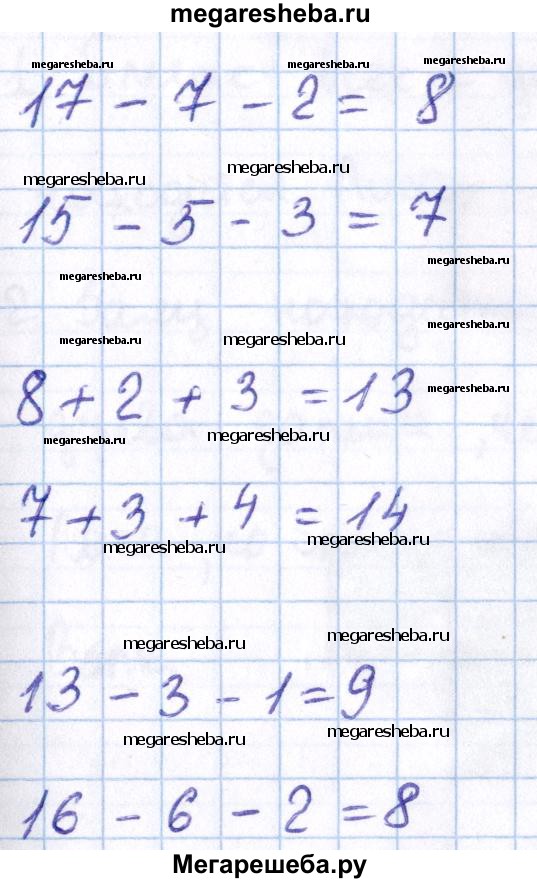 megaresheba.ru
megaresheba.ru megaresheba.ru megaresheba.ru
17 - 7 - 2 = 8
megaresheba.ru megaresheba.ru
15 - 5 - 3 = 7
megaresheba.ru megaresheba.ru
megaresheba.ru megaresheba.ru megaresheba.ru
8 + 2 + 3 = 13 megaresheba.ru
megaresheba.ru megaresheba.ru
7 + 3 + 4 = 14
megaresheba.ru megaresheba.ru
megaresheba.ru megaresheba.ru
13 - 3 - 1 = 9
megaresheba.ru megaresheba.ru
16 - 6 - 2 = 8
Мегарешеба.ру